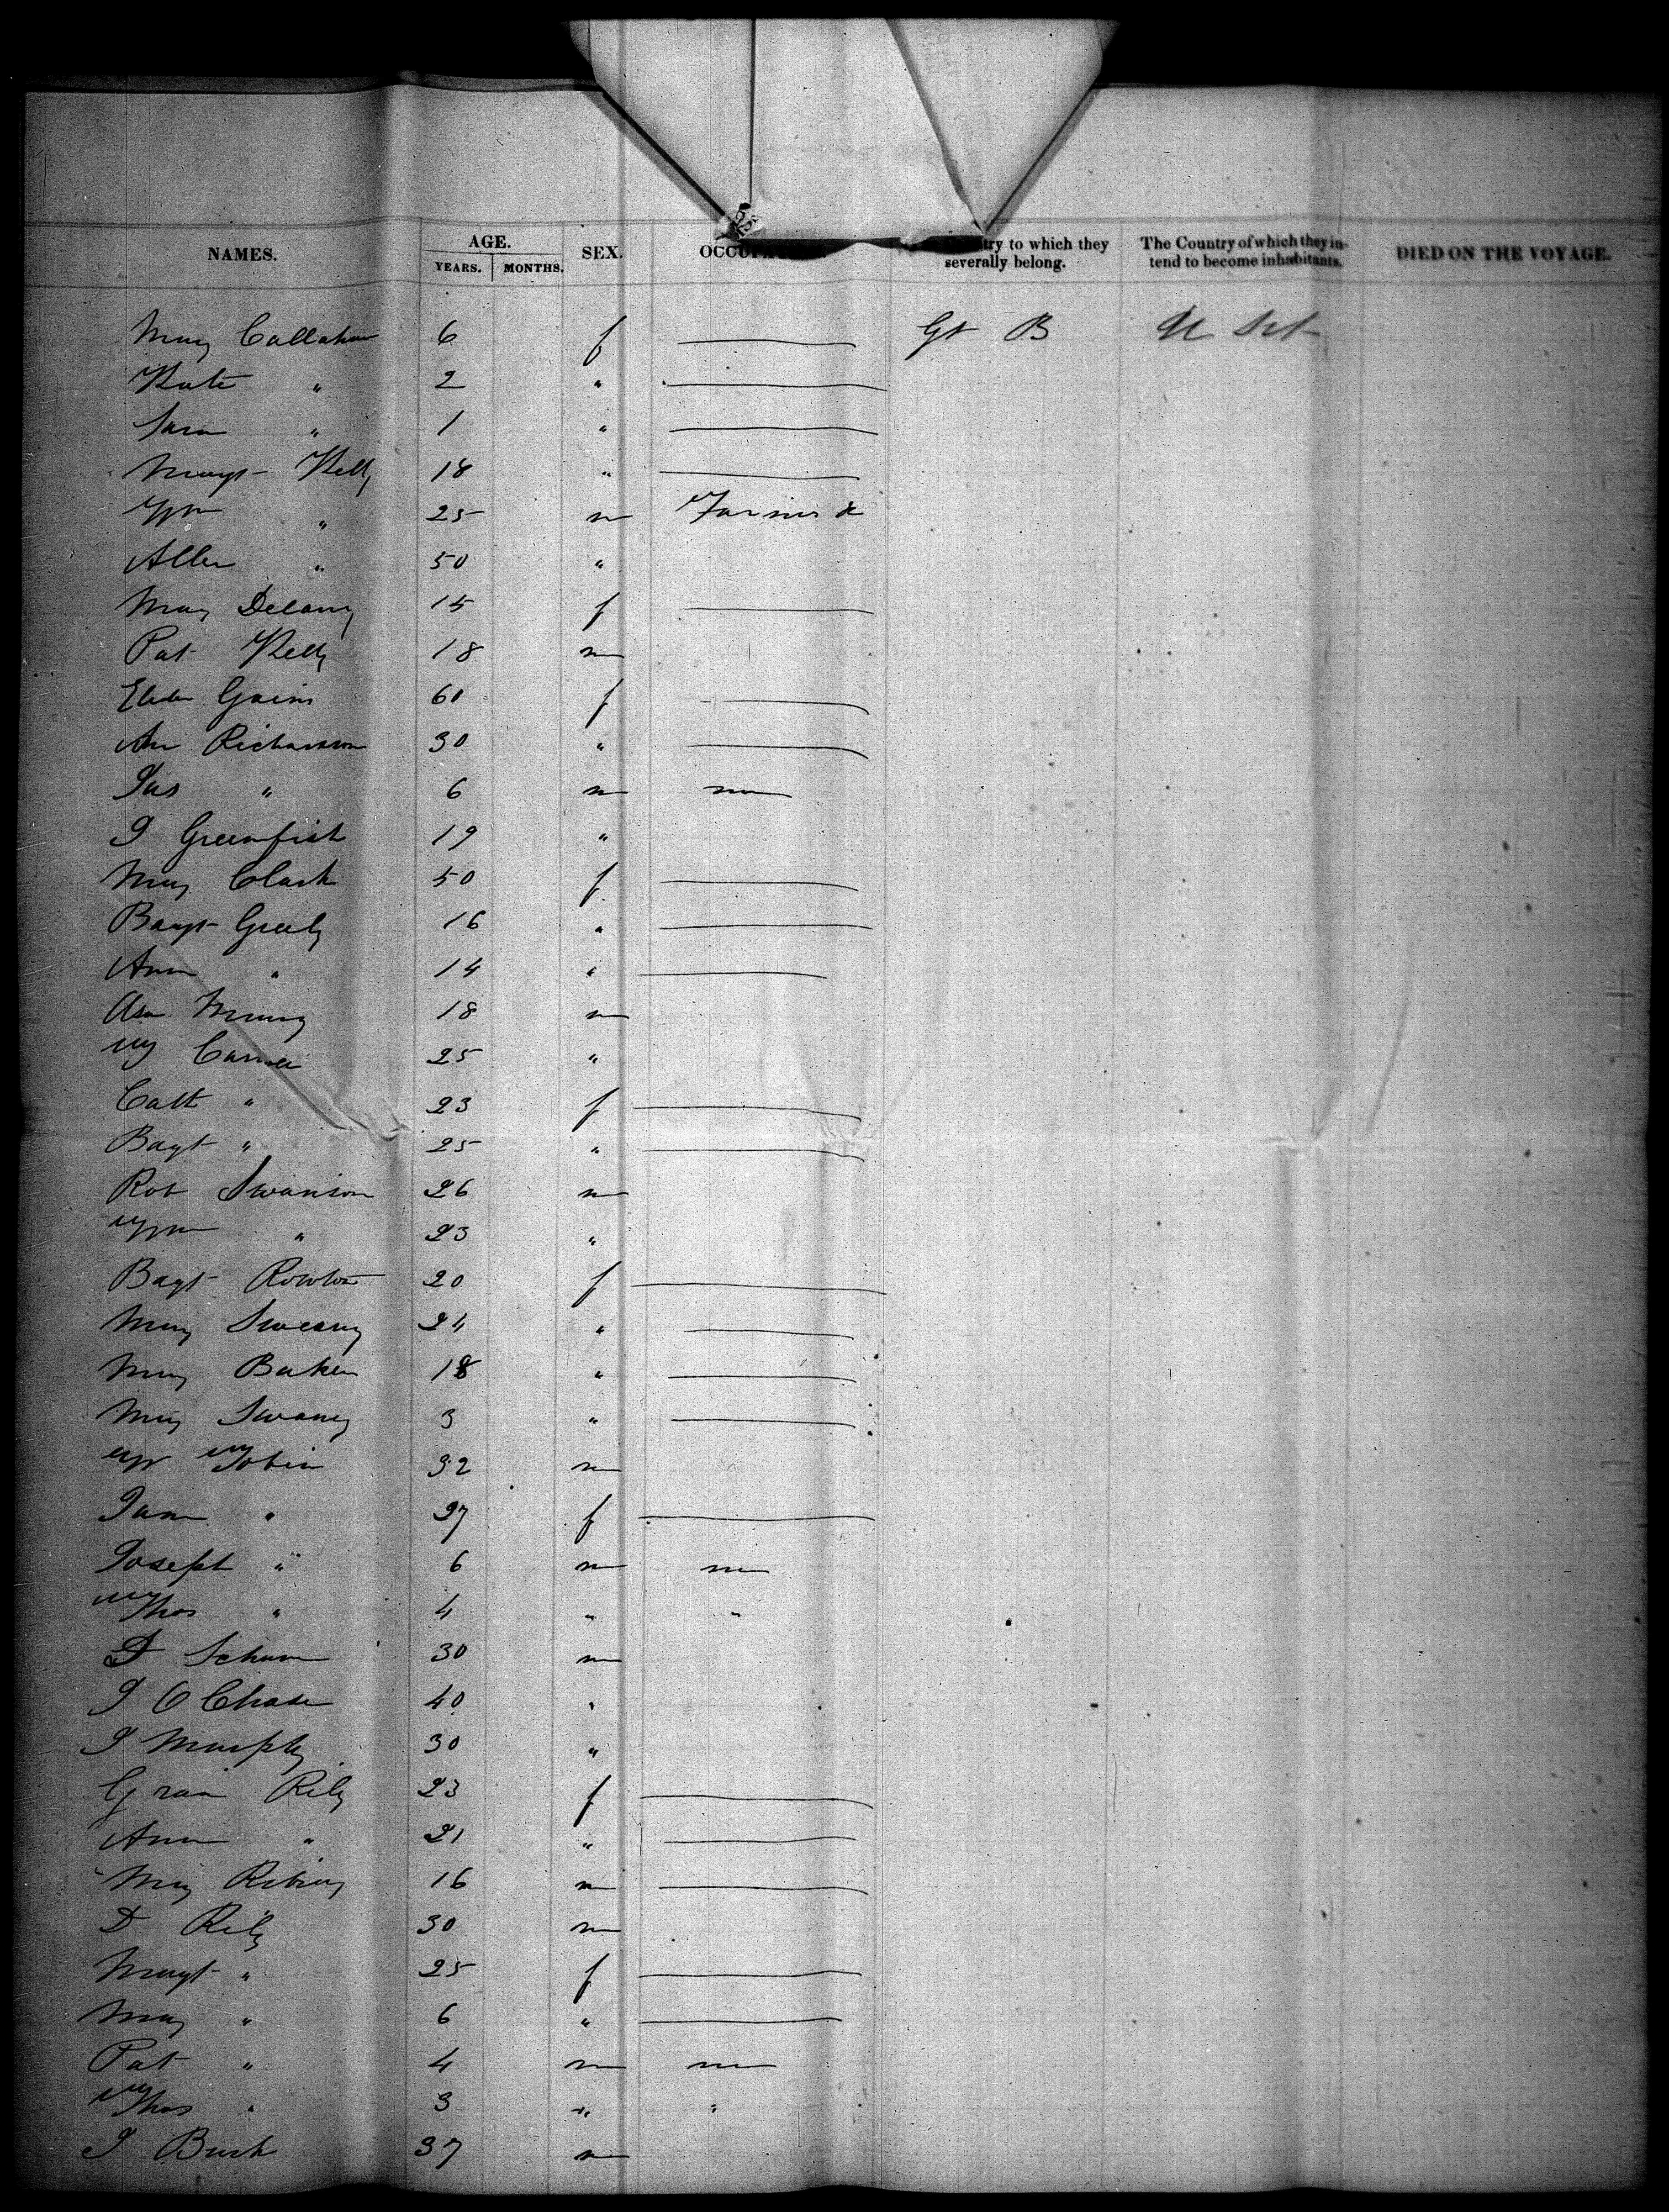 NAMES. AGE. SEX. try to which they The Country of which they in- DIED ON THE VOYAGE.
YEARS. MONTHS. severally belong. tend to become inhabitants.
Mary Callahan 6 f Gt B U Sts
Kate " 2 "
Sara " 1 "
Margt Kelly 18 "
Wm " 25 m Farmer &
Allen " 50 "
Mary Delany 15 f
Pat Kelly 18 m
Ellen 60 f
Ann Richardson 30 "
Jas " 6 m
J 19 "
Mary Clark 50 f
Bargt Greely 16 "
Ann " 14 "
18 m
25 "
Cath " 23 f
Bagt " 25 "
Rob Swanson 26 m
Wm " 23 "
Bagt 20 f
Mary Sweany 24 "
Mary Baker 18 "
Mary Swany 3 "
W Tobin 32 m
Jane " 27 f
Joseph " 6 m
Thos " 4 " "
30 m
J O Chase 40 "
J Murphy 30 "
Rily 23 f
Ann " 21 "
Mary 16 m
D Rily 30 m
Margt " 25 f
Mary " 6 "
Pat " 4 m
Thos " 3 " "
J 37 m